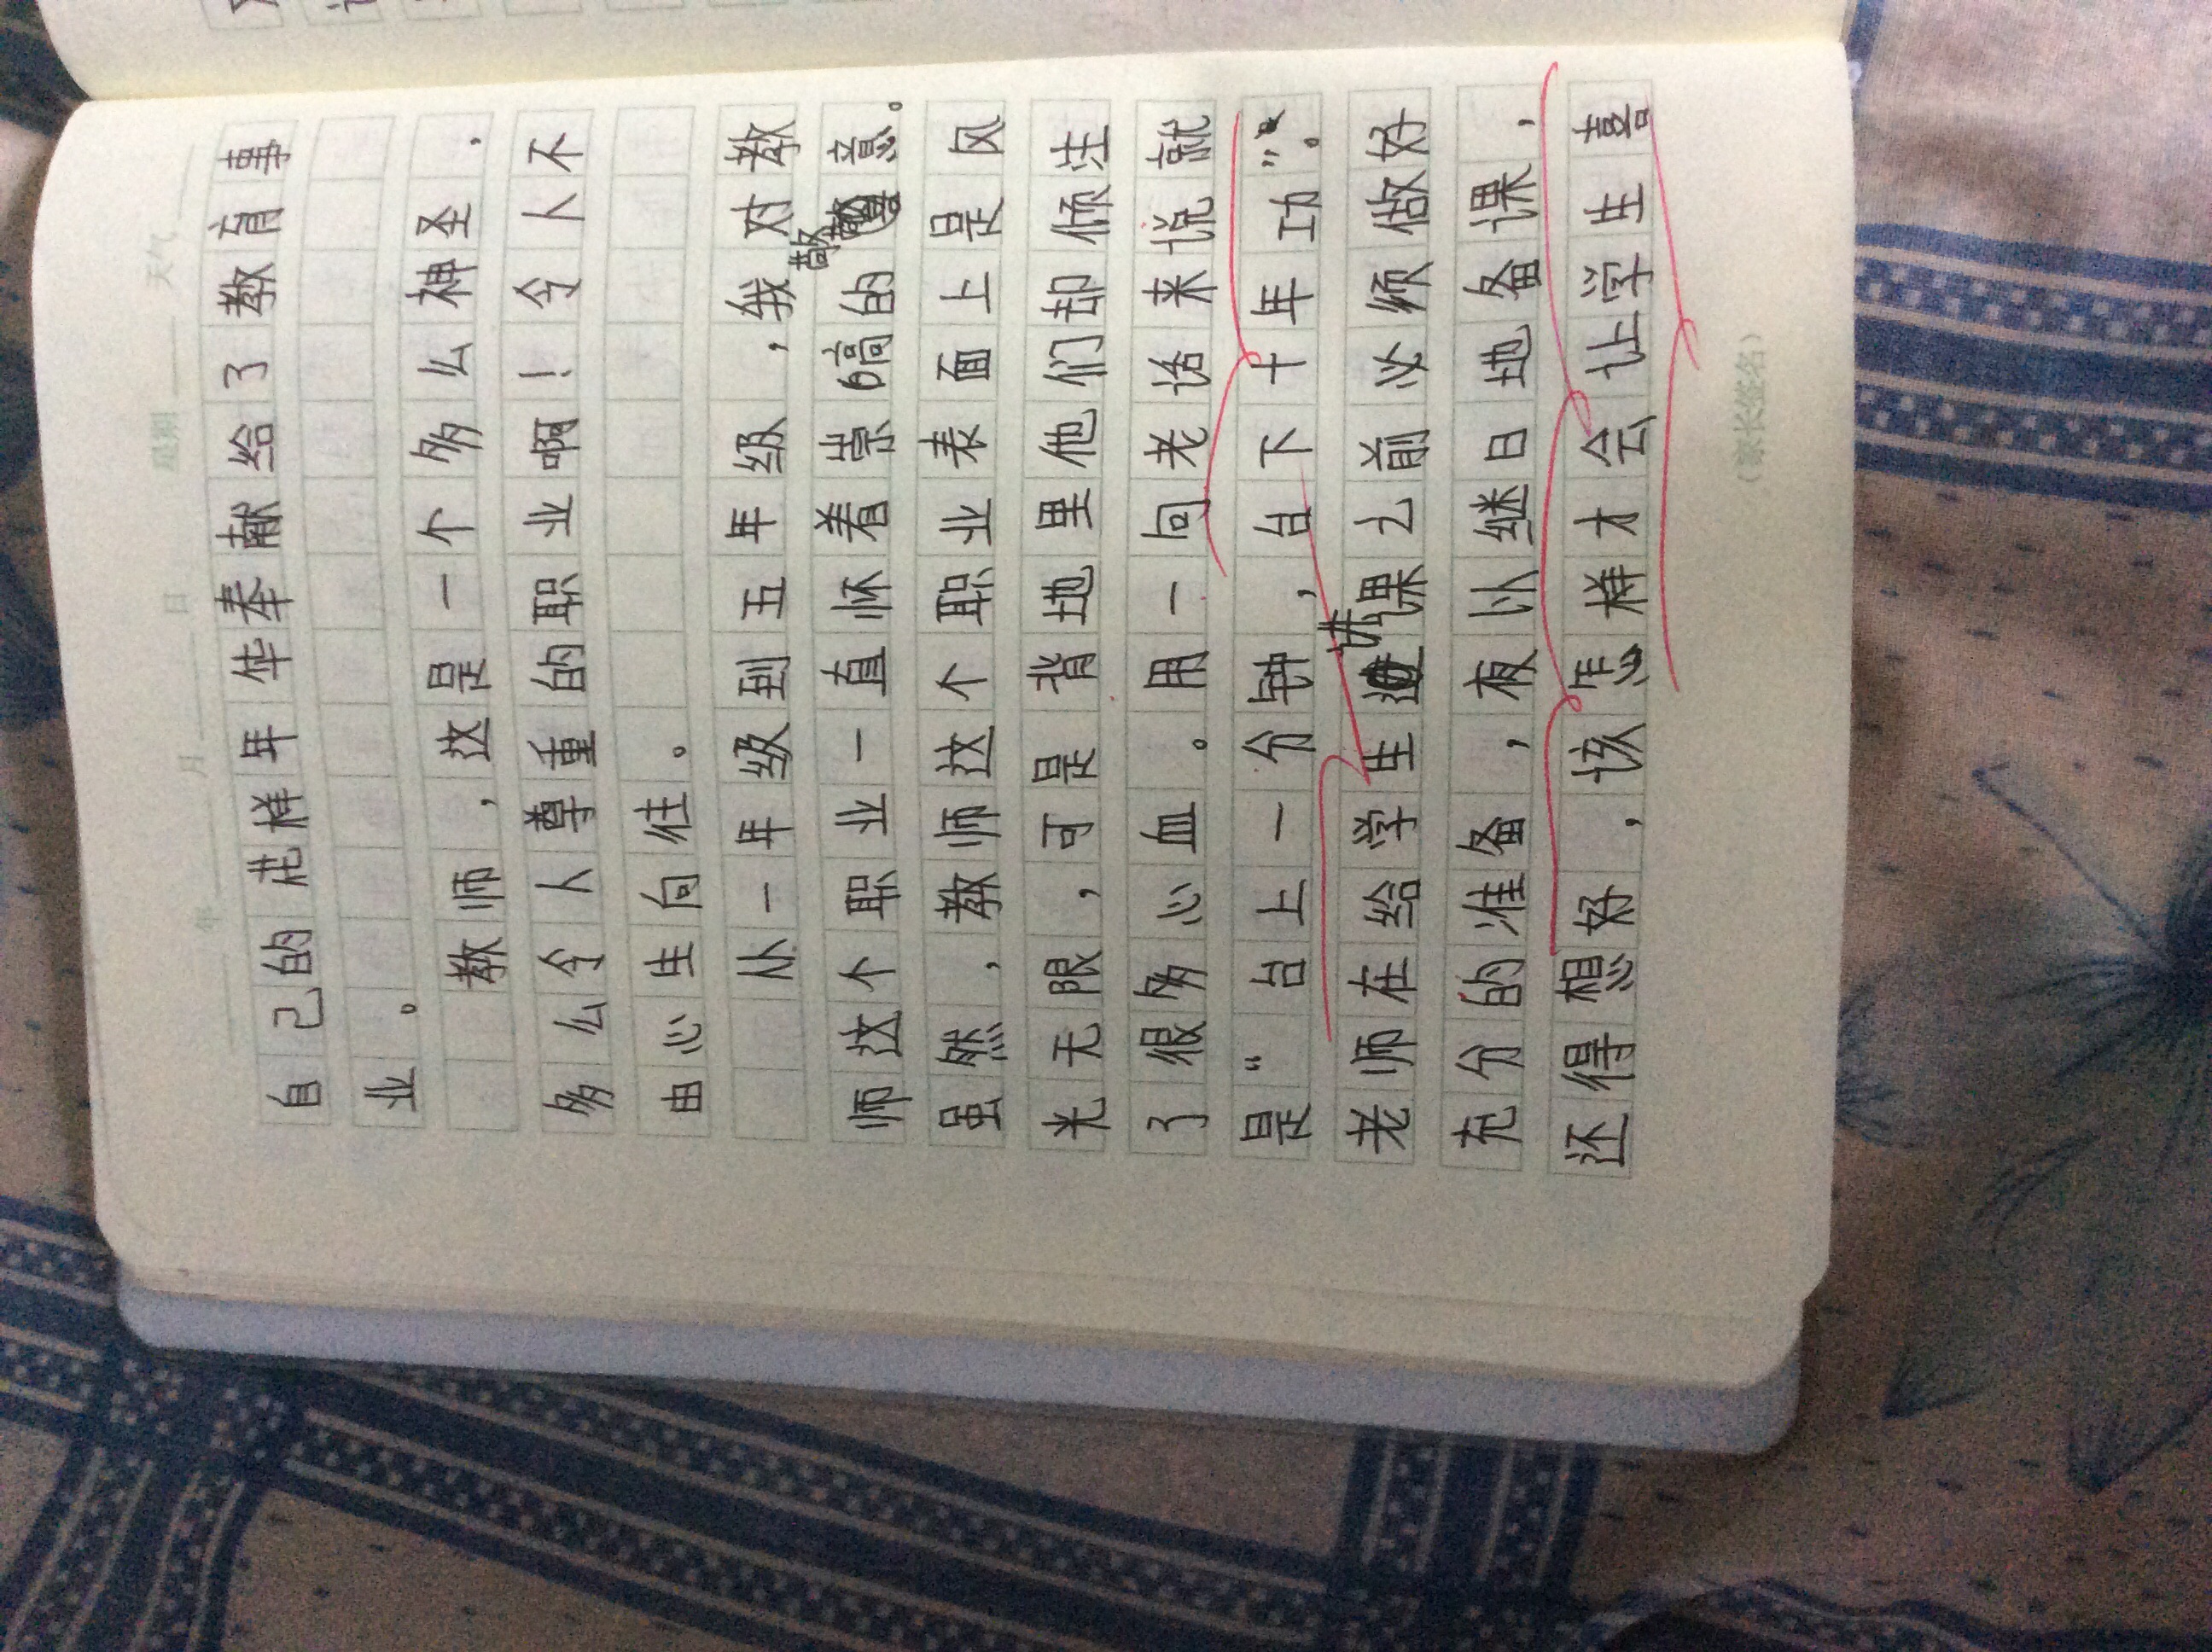 年 月 日 星期 天气
自己的花样年华奉献给了教育事
业。
教师，这是一个多么神圣、
多么令人尊重的职业啊！令人不
由心生向往。
从一年级到五年级，我对教
师这个职业一直怀着崇高的敬意。
虽然，教师这个职业表面上是风
光无限，可是背地里他们却倾注
了很多心血。用一句老话来说就
是“台上一分钟，台下十年功”。
老师在给学生讲课之前必须做好
充分的准备，夜以继日地备课，
还得想好，该怎样才会让学生喜
（家长签名）